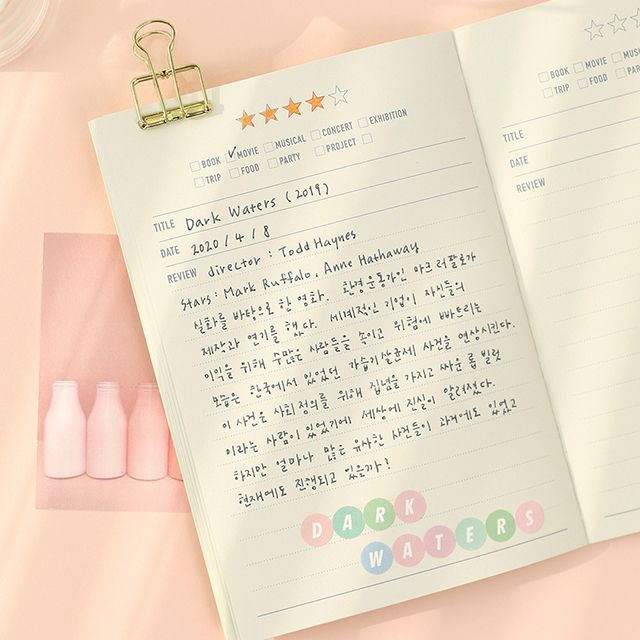 BOOK ✓MOVIE MUSICAL CONCERT EXHIBITION
TRIP FOOD PARTY PROJECT
TITLE Dark Waters (2019)
DATE 2020 / 4 / 8
REVIEW director : Todd Haynes
stars : Mark Ruffalo, Anne Hathaway
실화를 바탕으로 한 영화. 환경운동가인 마크 러팔로가
제작과 연기를 했다. 세계적인 기업이 자신들의
이익을 위해 수많은 사람들을 속이고 위험에 빠트리는
모습은 한국에서 있었던 가습기살균제 사건을 연상시킨다.
이 사건은 사회 정의를 위해 집념을 가지고 싸운 롭 빌럿
이라는 사람이 있었기에 세상에 진실이 알려졌다.
하지만 얼마나 많은 유사한 사건들이 과거에도 있었고
현재에도 진행되고 있을까?
DARK
WATERS
BOOK MOVIE
TRIP FOOD
TITLE
DATE
REVIEW